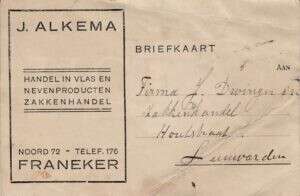 J. ALKEMA
HANDEL IN VLAS EN
NEVENPRODUCTEN
ZAKKENHANDEL
NOORD 72 - TELEF. 176
FRANEKER
BRIEFKAART
AAN
Firma J.
Zakkenhandel
Houtstraat
Leeuwarden